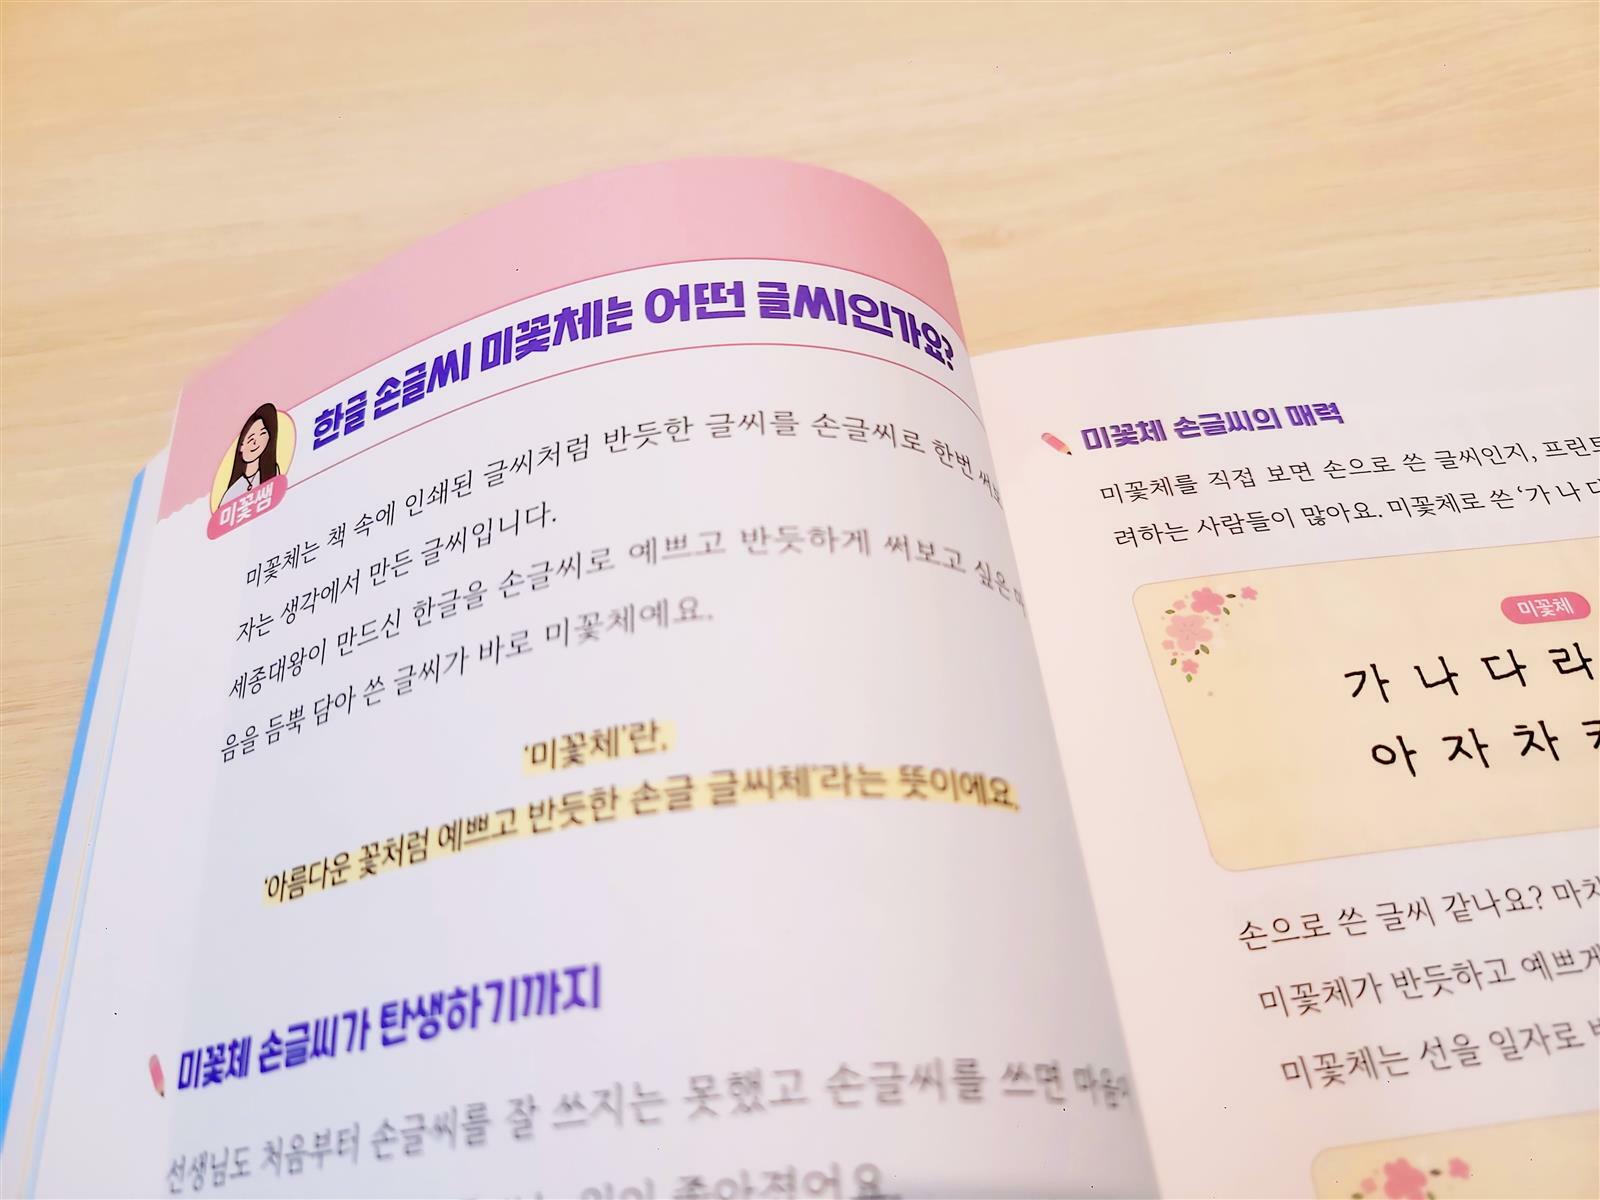 한글 손글씨 미꽃체는 어떤 글씨인가요?
미꽃쌤
미꽃체는 책 속에 인쇄된 글씨처럼 반듯한 글씨를 손글씨로 한번 써보
자는 생각에서 만든 글씨입니다.
세종대왕이 만드신 한글을 손글씨로 예쁘고 반듯하게 써보고 싶은 마
음을 듬뿍 담아 쓴 글씨가 바로 미꽃체예요.
‘미꽃체’란,
‘아름다운 꽃처럼 예쁘고 반듯한 손글 글씨체’라는 뜻이에요.
미꽃체 손글씨가 탄생하기까지
선생님도 처음부터 손글씨를 잘 쓰지는 못했고 손글씨를 쓰면 마음이
좋아졌어요.
미꽃체 손글씨의 매력
미꽃체를 직접 보면 손으로 쓴 글씨인지, 프린트
려하는 사람들이 많아요. 미꽃체로 쓴 ‘가 나 다
미꽃체
가 나 다 라
아 자 차 카
손으로 쓴 글씨 같나요? 마치
미꽃체가 반듯하고 예쁘게
미꽃체는 선을 일자로